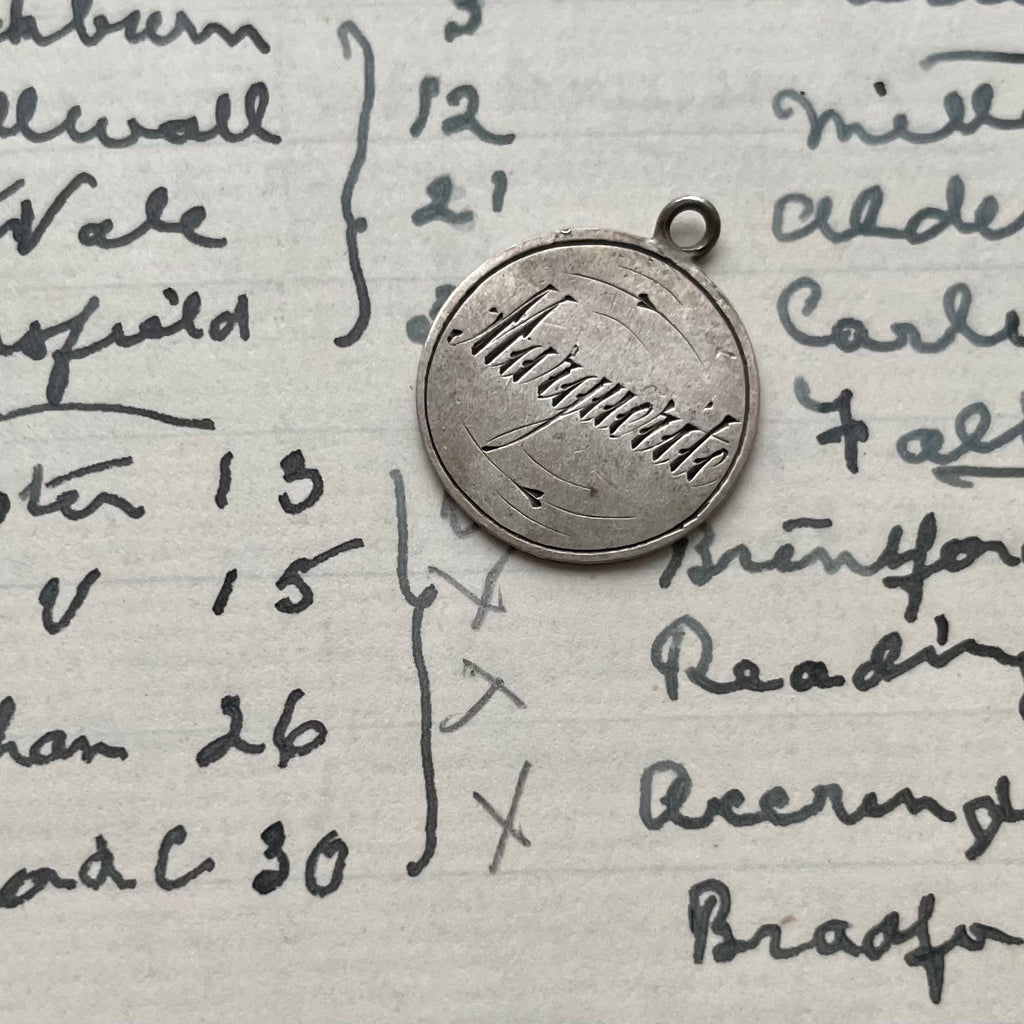 chburn 3
llwall 12 Mill
Vale 21 Alde
sfield Carl
Marguerite
7 al
ster 13
V 15 Brentfor
Reading
ham 26
Accring
ord C 30
Bradfo